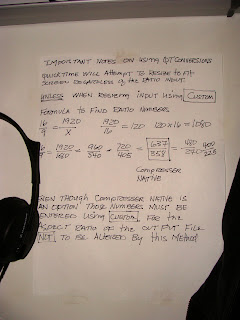 IMPORTANT NOTES ON USING QT CONVERSIONS
QUICKTIME WILL ATTEMPT TO RESIZE TO FIT
SCREEN REGARDLESS OF THE RATIO INPUT.
UNLESS WHEN RESIZING INPUT USING CUSTOM
FORMULA TO FIND RATIO NUMBERS
16/9 = 1920/X 1920/16 = 120 120x16=1080
16/9 = 1920/1080 = 960/540 = 720/405 = 637/358 = 480/270 = 400/225
COMPRESSER
NATIVE
EVEN THOUGH COMPRESSER NATIVE IS
AN OPTION THOSE NUMBERS MUST BE
ENTERED USING CUSTOM FOR THE
ASPECT RATIO OF THE OUT PUT FILE
NOT TO BE ALTERED BY THIS METHOD